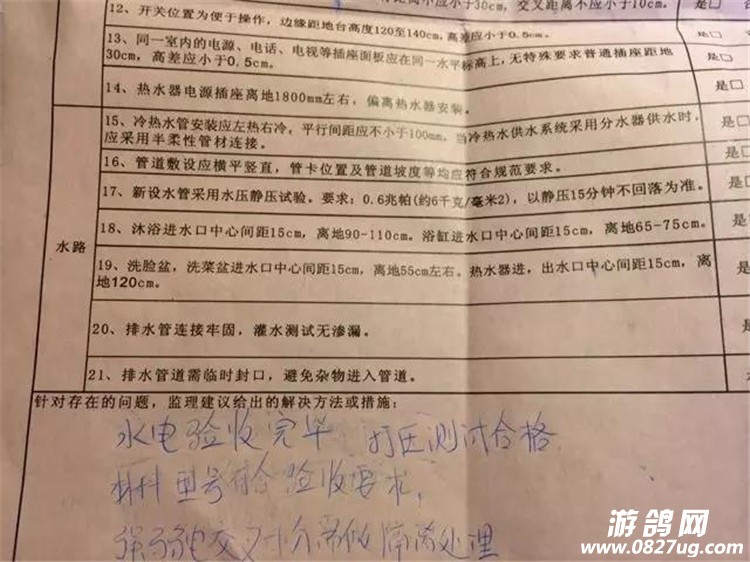 距离不应小于30cm，交叉距离不应小于10cm。 是□
12、开关位置为便于操作，边缘距地台高度120至140cm，高差应小于0.5cm。 是□
13、同一室内的电源、电话、电视等插座面板应在同一水平标高上，无特殊要求普通插座距地
30cm，高差应小于0.5cm。 是□
14、热水器电源插座离地1800mm左右，偏离热水器安装。 是□
水路
15、冷热水管安装应左热右冷，平行间距应不小于100mm，当冷热水供水系统采用分水器供水时，
应采用半柔性管材连接。 是□
16、管道敷设应横平竖直，管卡位置及管道坡度等均应符合规范要求。 是□
17、新设水管采用水压静压试验。要求：0.6兆帕(约6千克/毫米2)，以静压15分钟不回落为准。 是□
18、沐浴进水口中心间距15cm，离地90-110cm。浴缸进水口中心间距15cm，离地65-75cm。 是□
19、洗脸盆，洗菜盆进水口中心间距15cm，离地55cm左右。热水器进，出水口中心间距15cm，离
地120cm。 是
20、排水管连接牢固，灌水测试无渗漏。 是
21、排水管道需临时封口，避免杂物进入管道。
针对存在的问题，监理建议给出的解决方法或措施：
水电验收完毕 打压测试合格
材料型号符合验收要求，
强弱电交叉部分需做隔离处理
游鸽网
www.0827ug.com